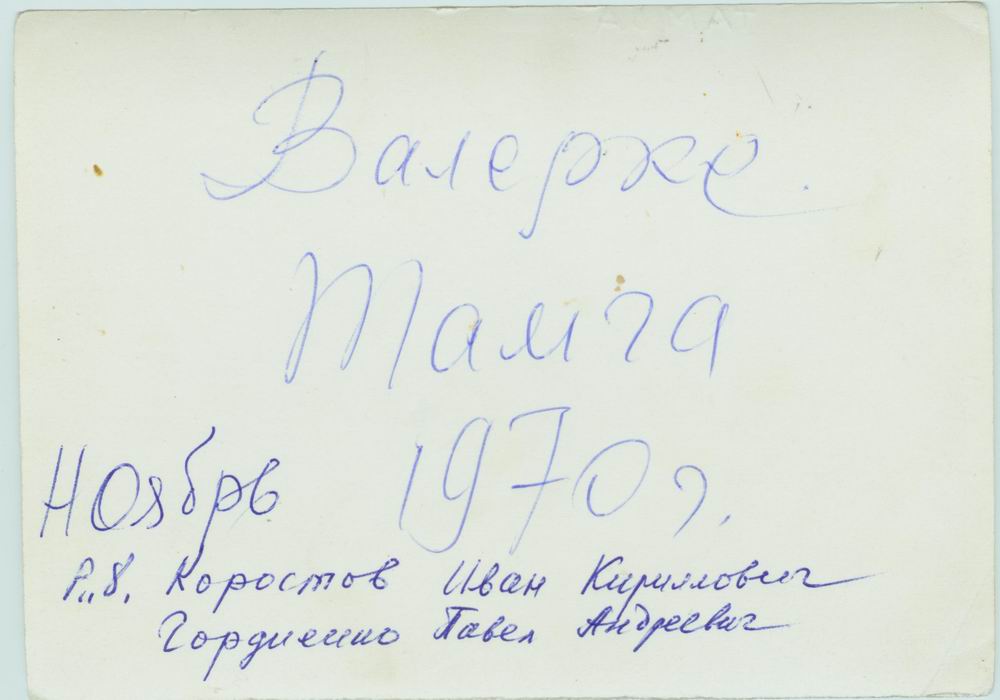 Валерке.
Тамга
Ноябрь 1970 г.
Р.,,8. Коростов Иван Кириллович
Гордиенко Павел Андреевич